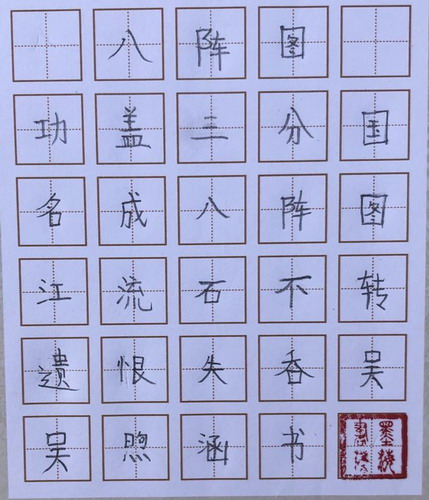 八阵图
功盖三分国
名成八阵图
江流石不转
遗恨失吞吴
吴煦涵书